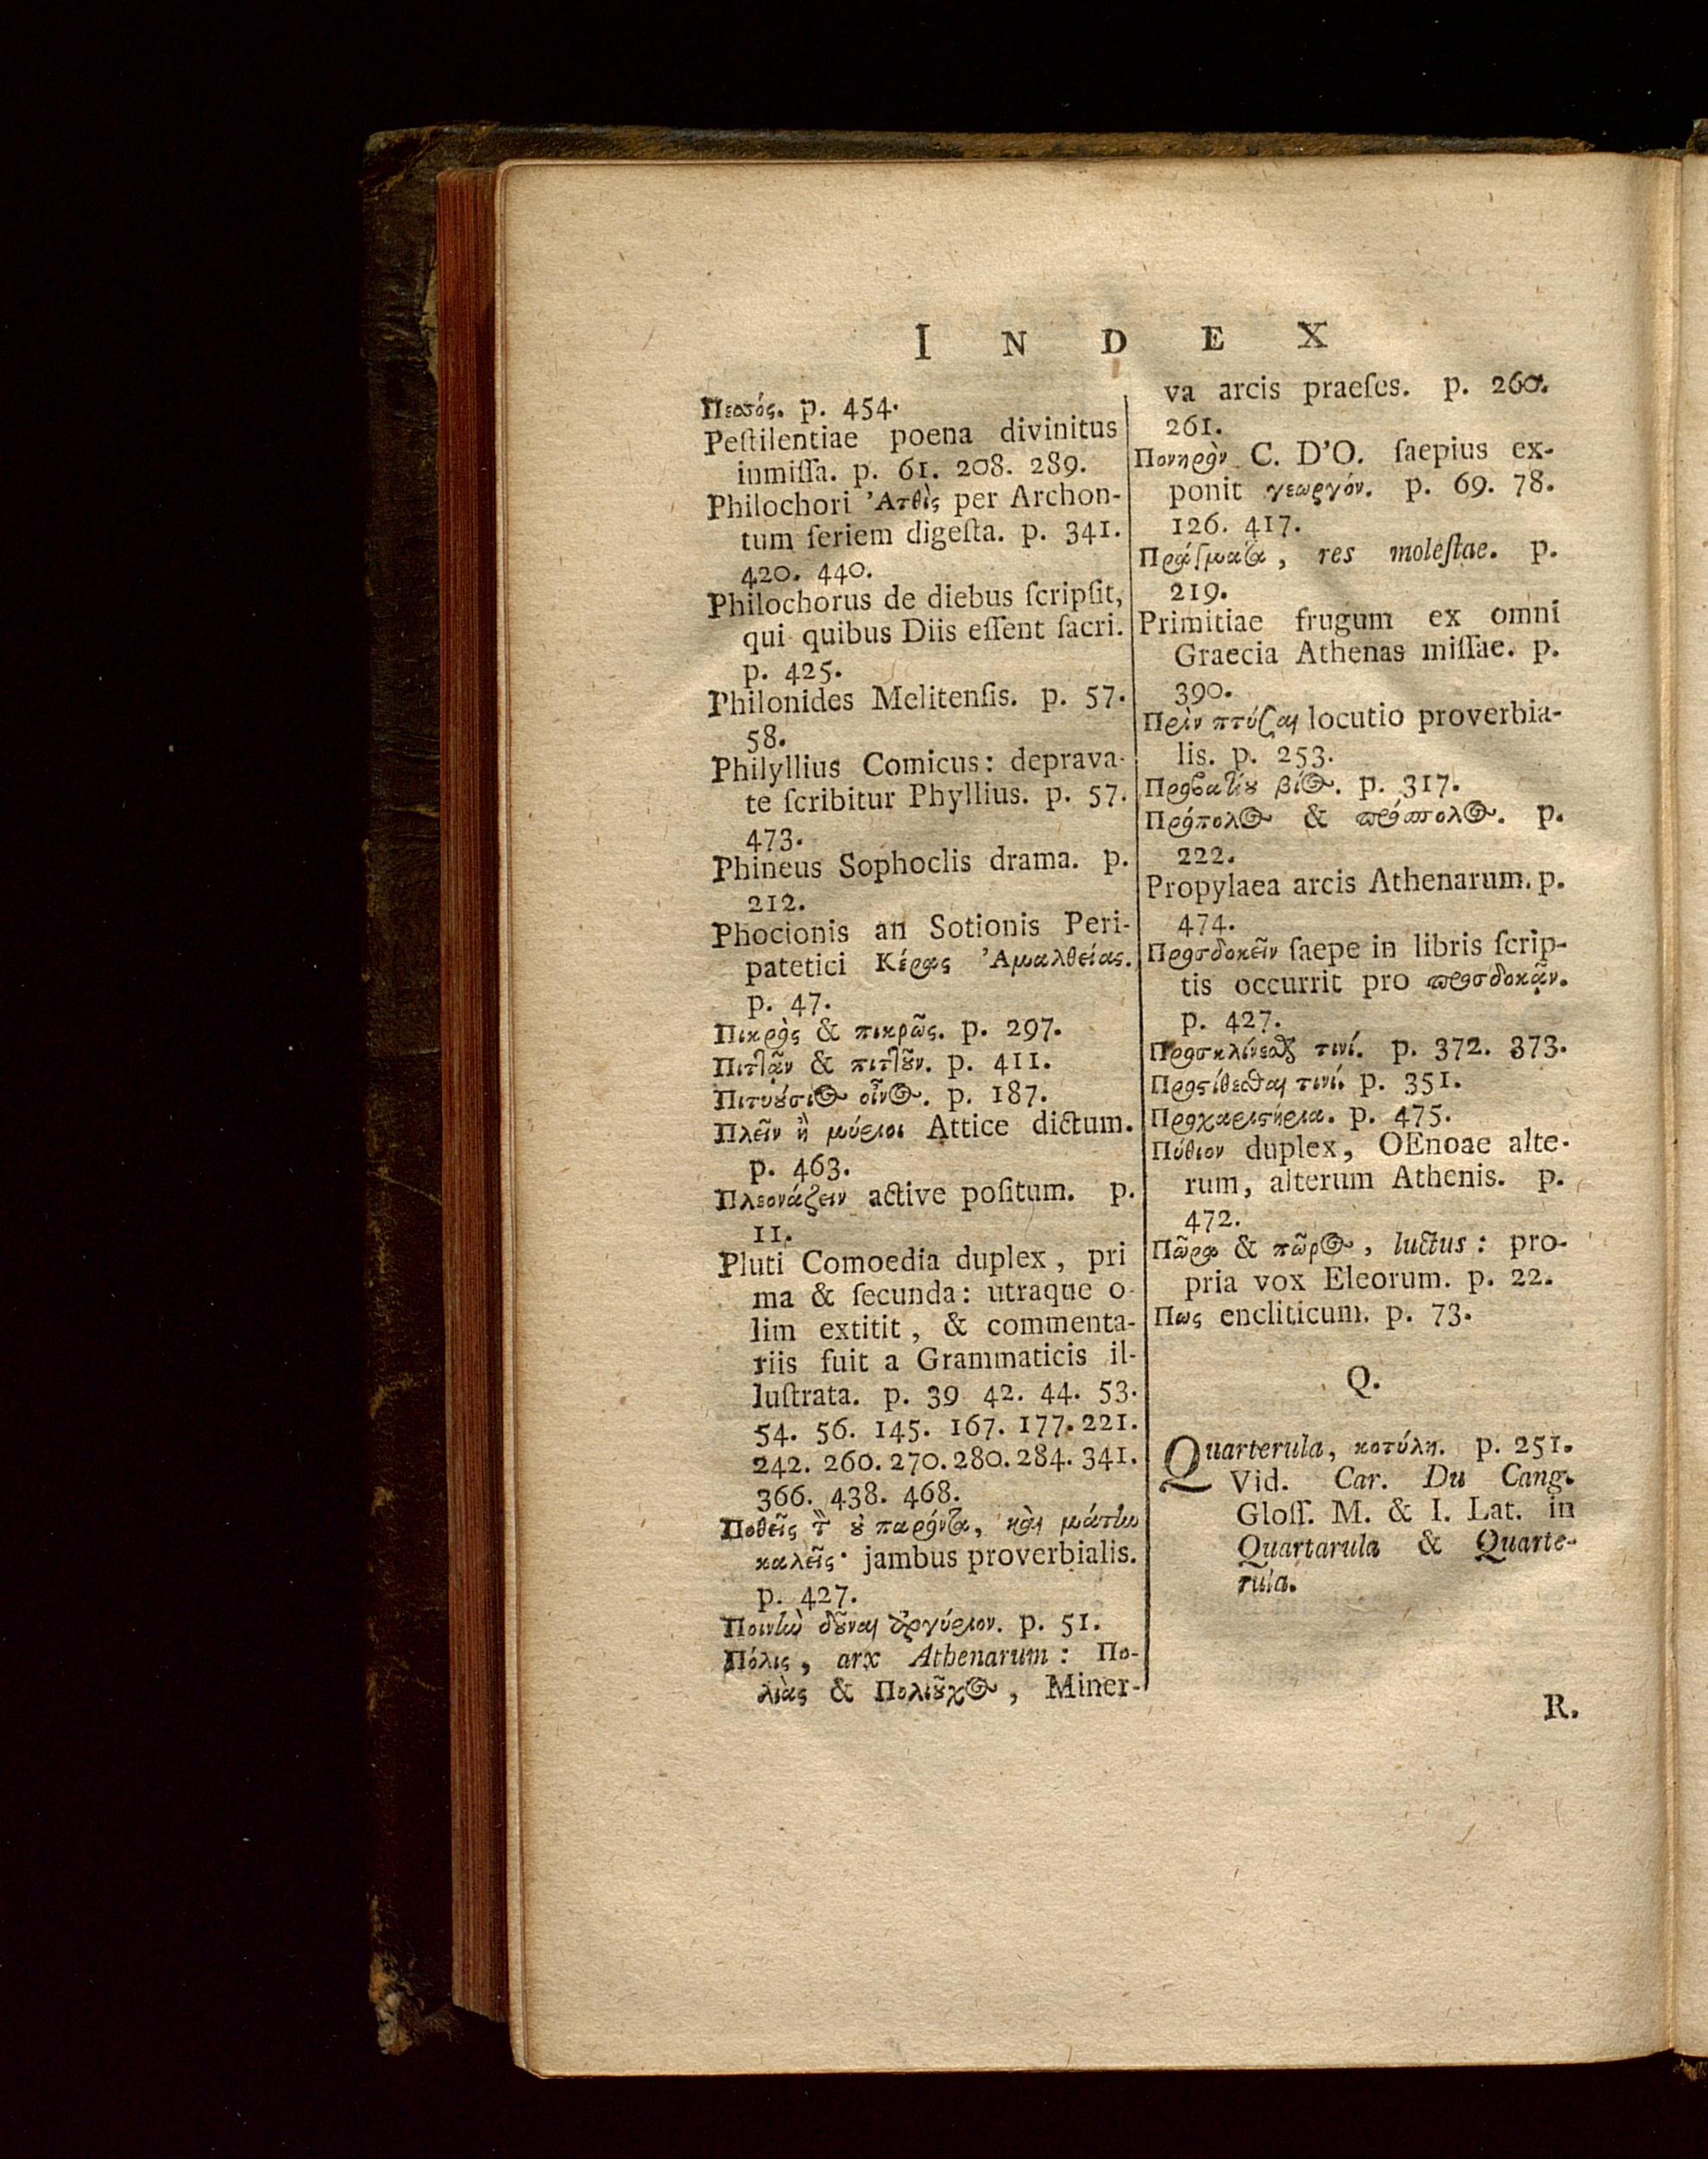 INDEX
Πεσσός. p. 454.
Peſtilentiae poena divinitus
inmiſſa. p. 61. 208. 289.
Philochori Ἀτθὶς per Archon-
tum ſeriem digeſta. p. 341.
420. 440.
Philochorus de diebus ſcripſit,
qui quibus Diis eſſent ſacri.
p. 425.
Philonides Melitenſis. p. 57.
58.
Philyllius Comicus: deprava-
te ſcribitur Phyllius. p. 57.
473.
Phineus Sophoclis drama. p.
212.
Phocionis an Sotionis Peri-
patetici Κέρας Ἀμαλθείας.
p. 47.
Πικρὸς & πικρῶς. p. 297.
Πιτ]ᾷν & πιτ]ȣ͂ν. p. 411.
Πιτυȣ́σι⊙ οἶν⊙. p. 187.
Πλεῖν ἢ μύριοι Attice dictum.
p. 463.
Πλεονάζειν active poſitum. p.
11.
Pluti Comoedia duplex, pri
ma & ſecunda: utraque o-
lim extitit, & commenta-
riis fuit a Grammaticis il-
luſtrata. p. 39 42. 44. 53.
54. 56. 145. 167. 177. 221.
242. 260. 270. 280. 284. 341.
366. 438. 468.
Ποθεῖς τὸν ȣ̓ παρόντα, καὶ μάτην
καλεῖς· jambus proverbialis.
p. 427.
Ποινὴν δȣ͂ναι ἀργύριον. p. 51.
Πόλις, arx Athenarum: Πο-
λιὰς & Πολιȣ͂χος, Miner-
va arcis praeſes. p. 260.
261.
Πονηρὸν C. D'O. ſaepius ex-
ponit γεωργόν. p. 69. 78.
126. 417.
Πράγματα, res moleſtae. p.
219.
Primitiae frugum ex omni
Graecia Athenas miſſae. p.
390.
Πρὶν πτύσαι locutio proverbia-
lis. p. 253.
Προβατίȣ βίος. p. 317.
Πρόπολος & πρόσπολος. p.
222.
Propylaea arcis Athenarum. p.
474.
Προσδοκεῖν ſaepe in libris ſcrip-
tis occurrit pro προσδοκᾷν.
p. 427.
Προσκλίνεσθαι τινί. p. 372. 373.
Προςίθεσθαι τινί. p. 351.
Προχαριστήρια. p. 475.
Πύθιον duplex, OEnoae alte-
rum, alterum Athenis. p.
472.
Πῶρα & πῶρος, luctus: pro-
pria vox Eleorum. p. 22.
Πως encliticum. p. 73.
Q.
Quarterula, κοτύλη. p. 251.
Vid. Car. Du Cang.
Gloſſ. M. & I. Lat. in
Quartarula & Quarte-
rula.
R.